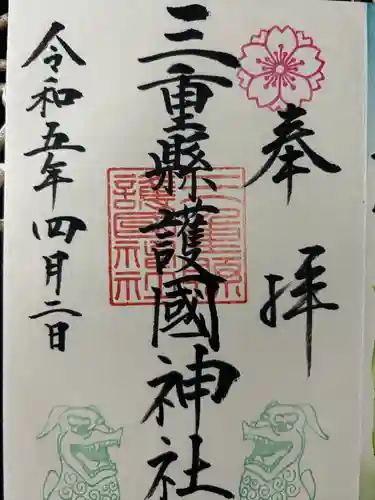 奉拝
三重縣護國神社
三重縣護國神社
令和五年四月二日